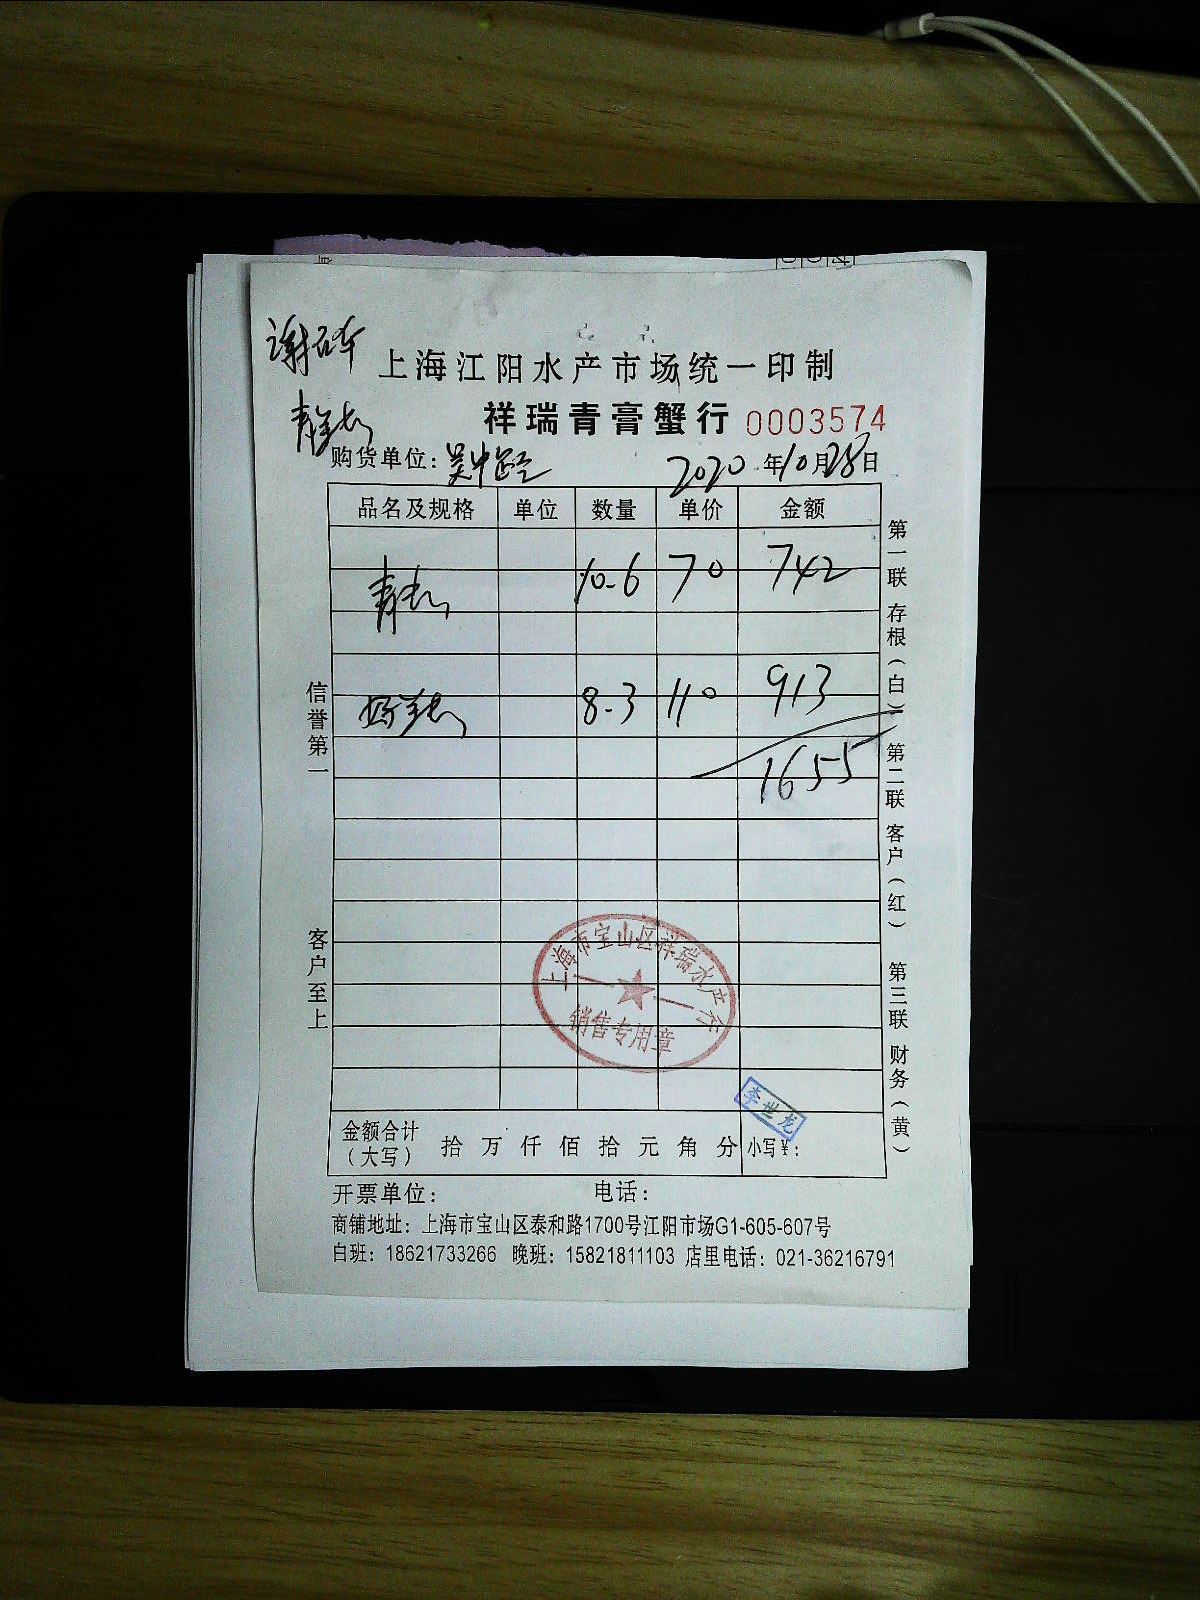 上海江阳水产市场统一印制
祥瑞青膏蟹行 0003574
购货单位: 2020年10月28日
品名及规格 单位 数量 单价 金额
10.6 70 742
8.3 110 913
1655
信誉第一
客户至上
第一联 存根(白) 第二联 客户(红) 第三联 财务(黄)
上海市宝山区祥瑞水产行
销售专用章
李世龙
金额合计(大写) 拾万仟佰拾元角分 小写¥:
开票单位: 电话:
商铺地址: 上海市宝山区泰和路1700号江阳市场G1-605-607号
白班: 18621733266 晚班: 15821811103 店里电话: 021-36216791